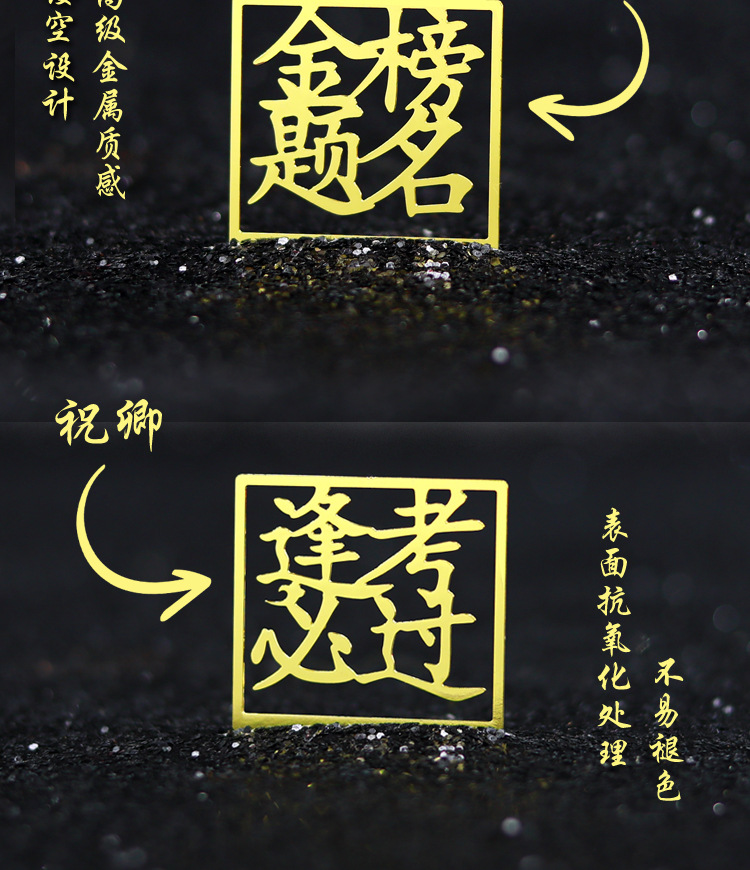 镂空设计
高级金属质感
金榜
题名
祝卿
逢考
必过
表面抗氧化处理
不易褪色